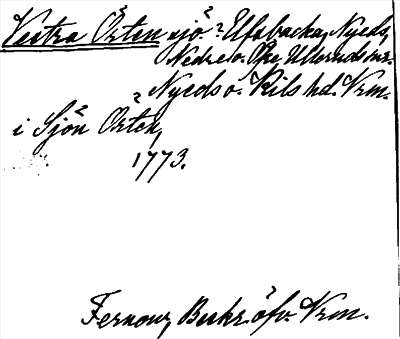 Vestra Örten sjö? Elfsbacka, Nyeds,
Nedre o. Öfre Ullerud snr.
Nyeds o. Kils hd. Vrm.
i Sjön Örten,
1773.
Fernow, Beskr. öfv. Vrm.